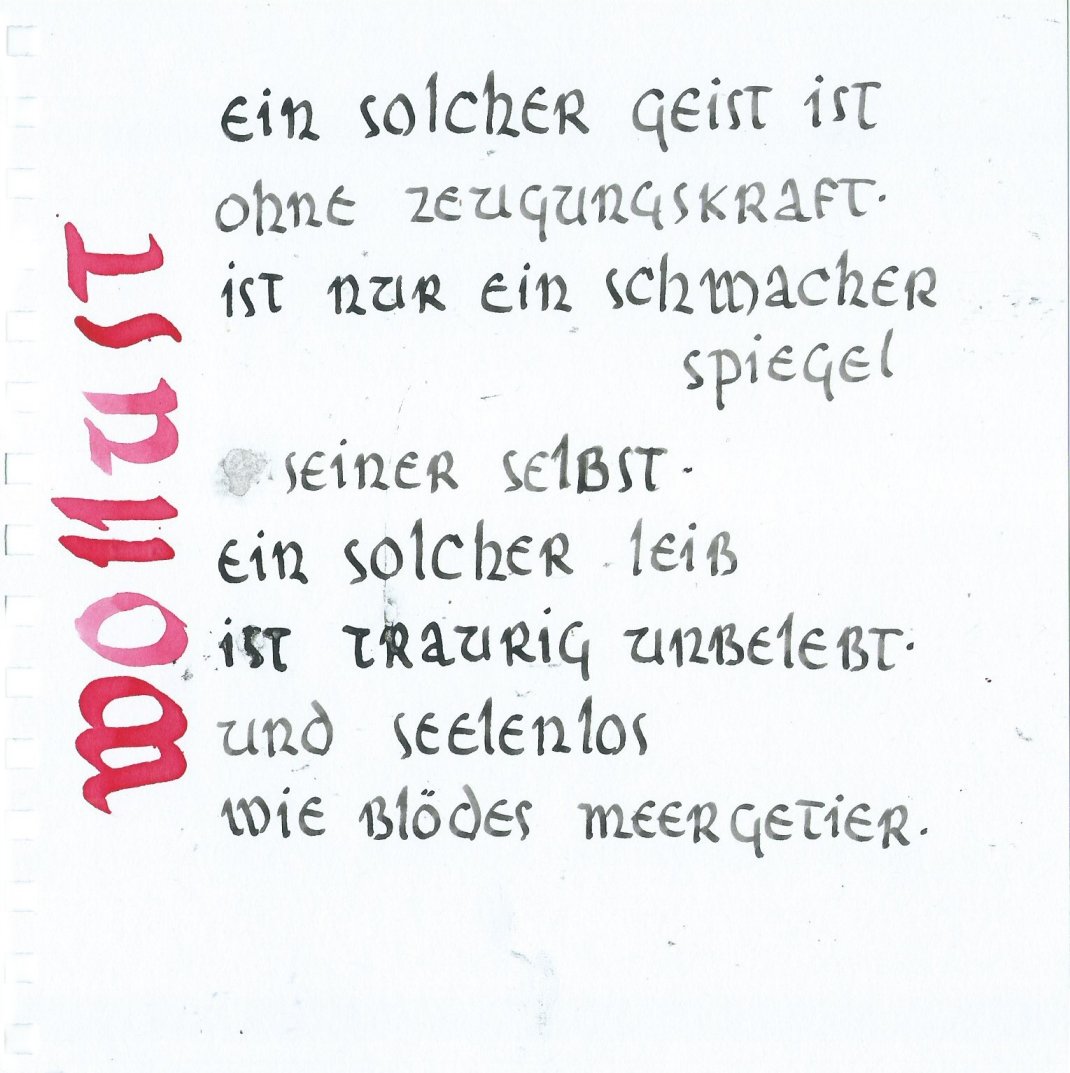 wollust
ein solcher geist ist
ohne zeugungskraft.
ist nur ein schwacher
spiegel
seiner selbst.
ein solcher leib
ist traurig unbelebt.
und seelenlos
wie blödes meergetier.